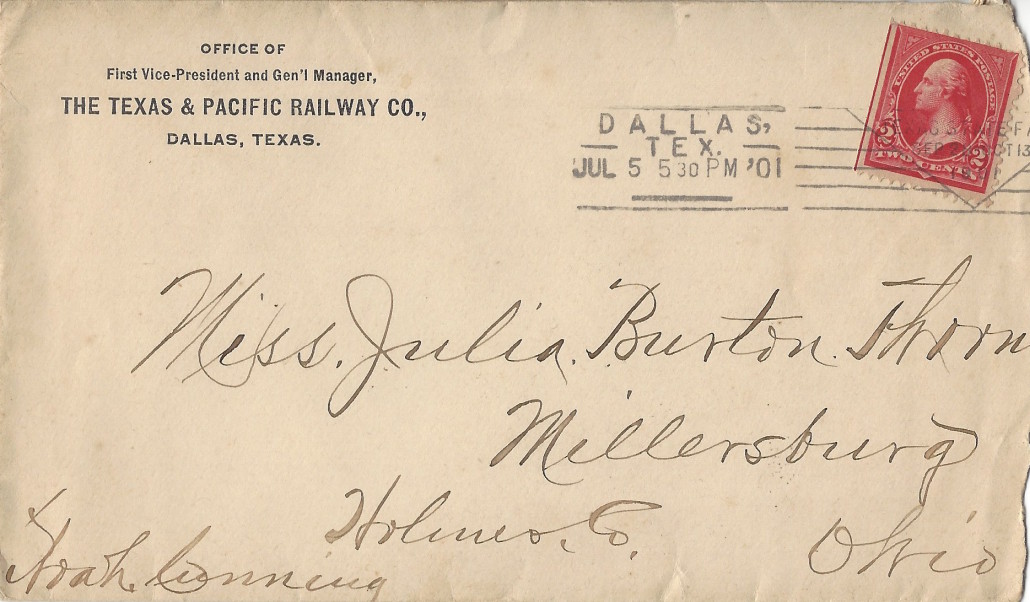 OFFICE OF
First Vice-President and Gen'l Manager,
THE TEXAS & PACIFIC RAILWAY CO.,
DALLAS, TEXAS.
DALLAS,
TEX.
JUL 5 5 30 PM '01
UNITED STATES POSTAGE
2 2
TWO CENTS
Miss. Julia. Burton. Thorn
Millersburg
Holmes. Co.
Ohio
Noah.